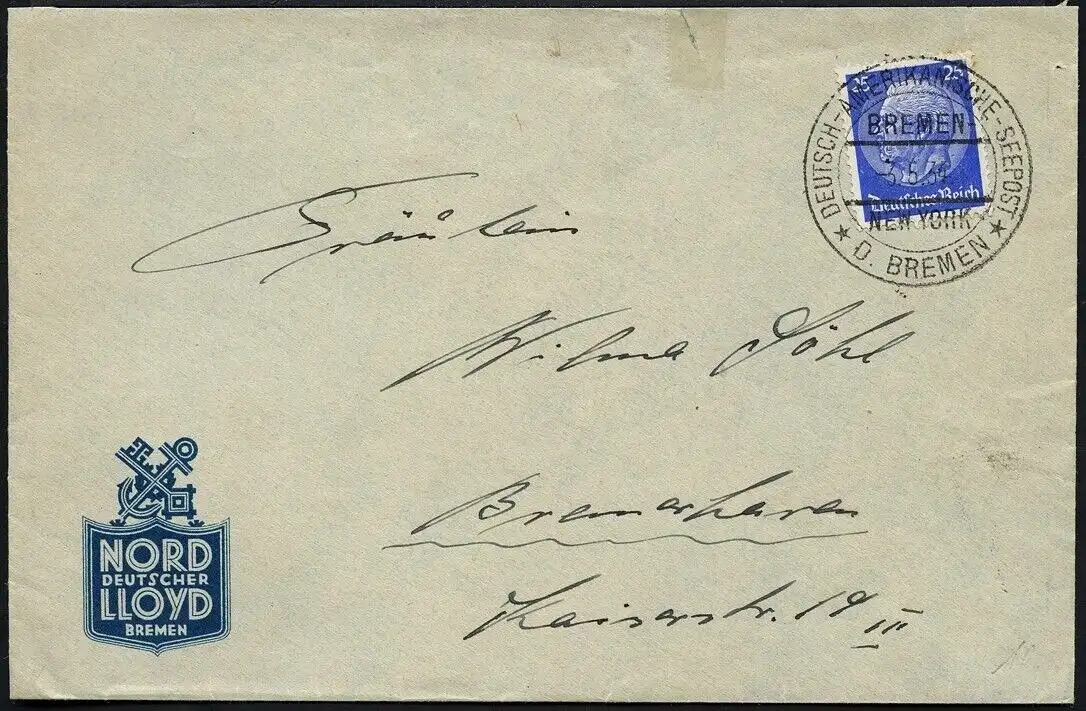 25 25
Deutsches Reich
DEUTSCH-AMERIKANISCHE-SEEPOST
BREMEN
-3.5.34
NEW YORK
★ D. BREMEN ★
Fräulein
Wilma Döhl
Bremerhaven
Kaiserstr. 19 III
NORD
DEUTSCHER
LLOYD
BREMEN